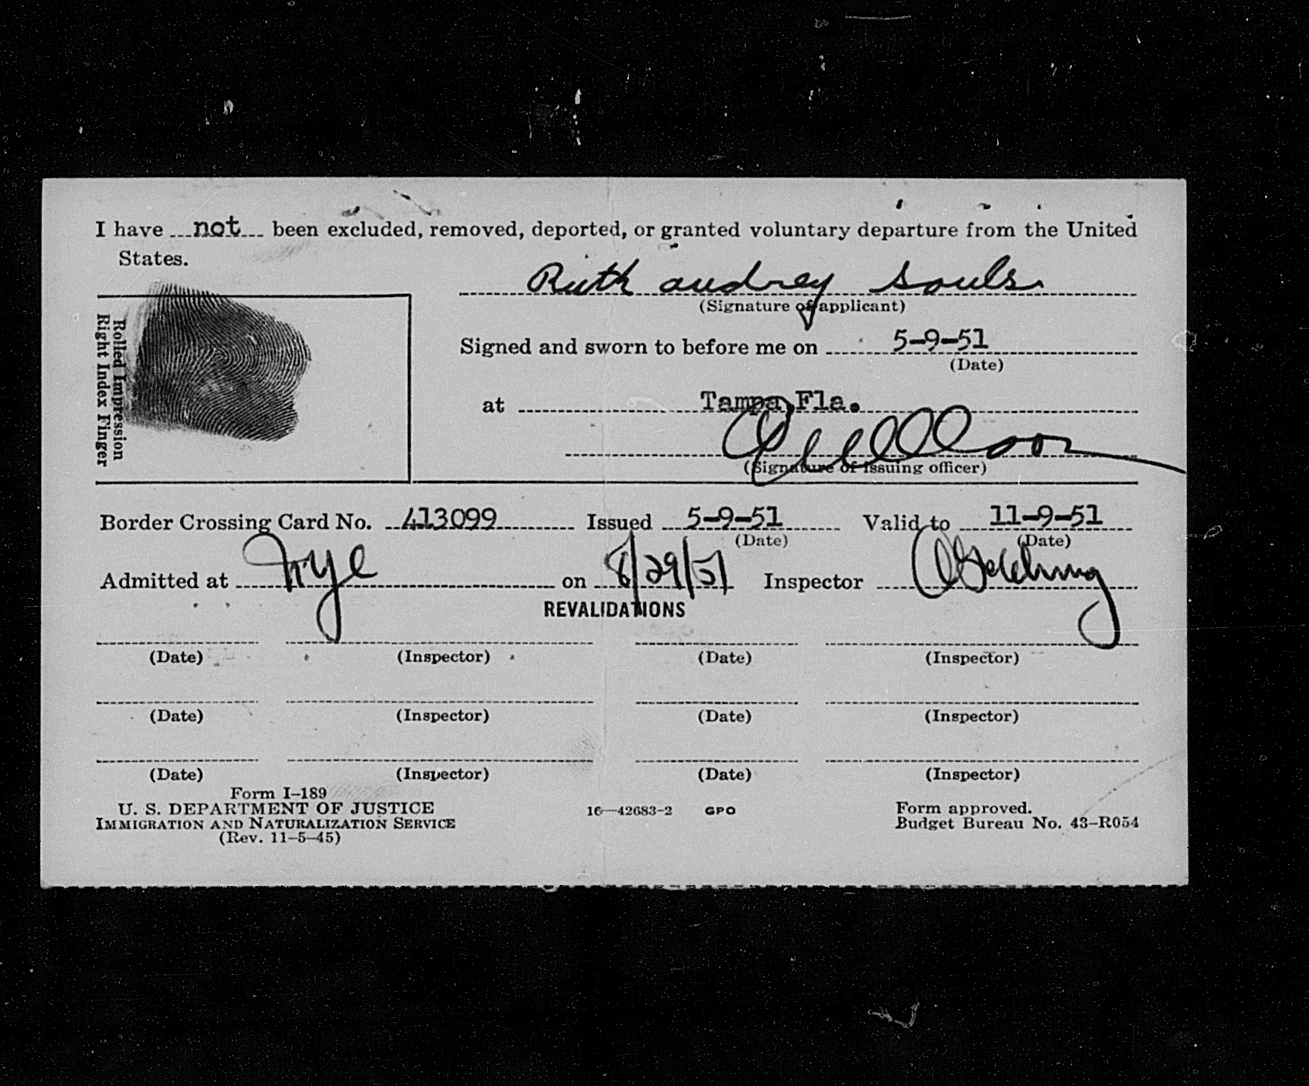 I have not been excluded, removed, deported, or granted voluntary departure from the United
States.
Ruth Audrey Souls
(Signature of applicant)
Rolled Impression
Right Index Finger
Signed and sworn to before me on 5-9-51
(Date)
at Tampa, Fla.
(Signature of issuing officer)
Border Crossing Card No. 413099 Issued 5-9-51 Valid to 11-9-51
(Date) (Date)
Admitted at on 8/29/51 Inspector
REVALIDATIONS
(Date) (Inspector) (Date) (Inspector)
(Date) (Inspector) (Date) (Inspector)
(Date) (Inspector) (Date) (Inspector)
Form I-189
U. S. DEPARTMENT OF JUSTICE
IMMIGRATION AND NATURALIZATION SERVICE
(Rev. 11-5-45)
16—42683-2 GPO
Form approved.
Budget Bureau No. 43-R054